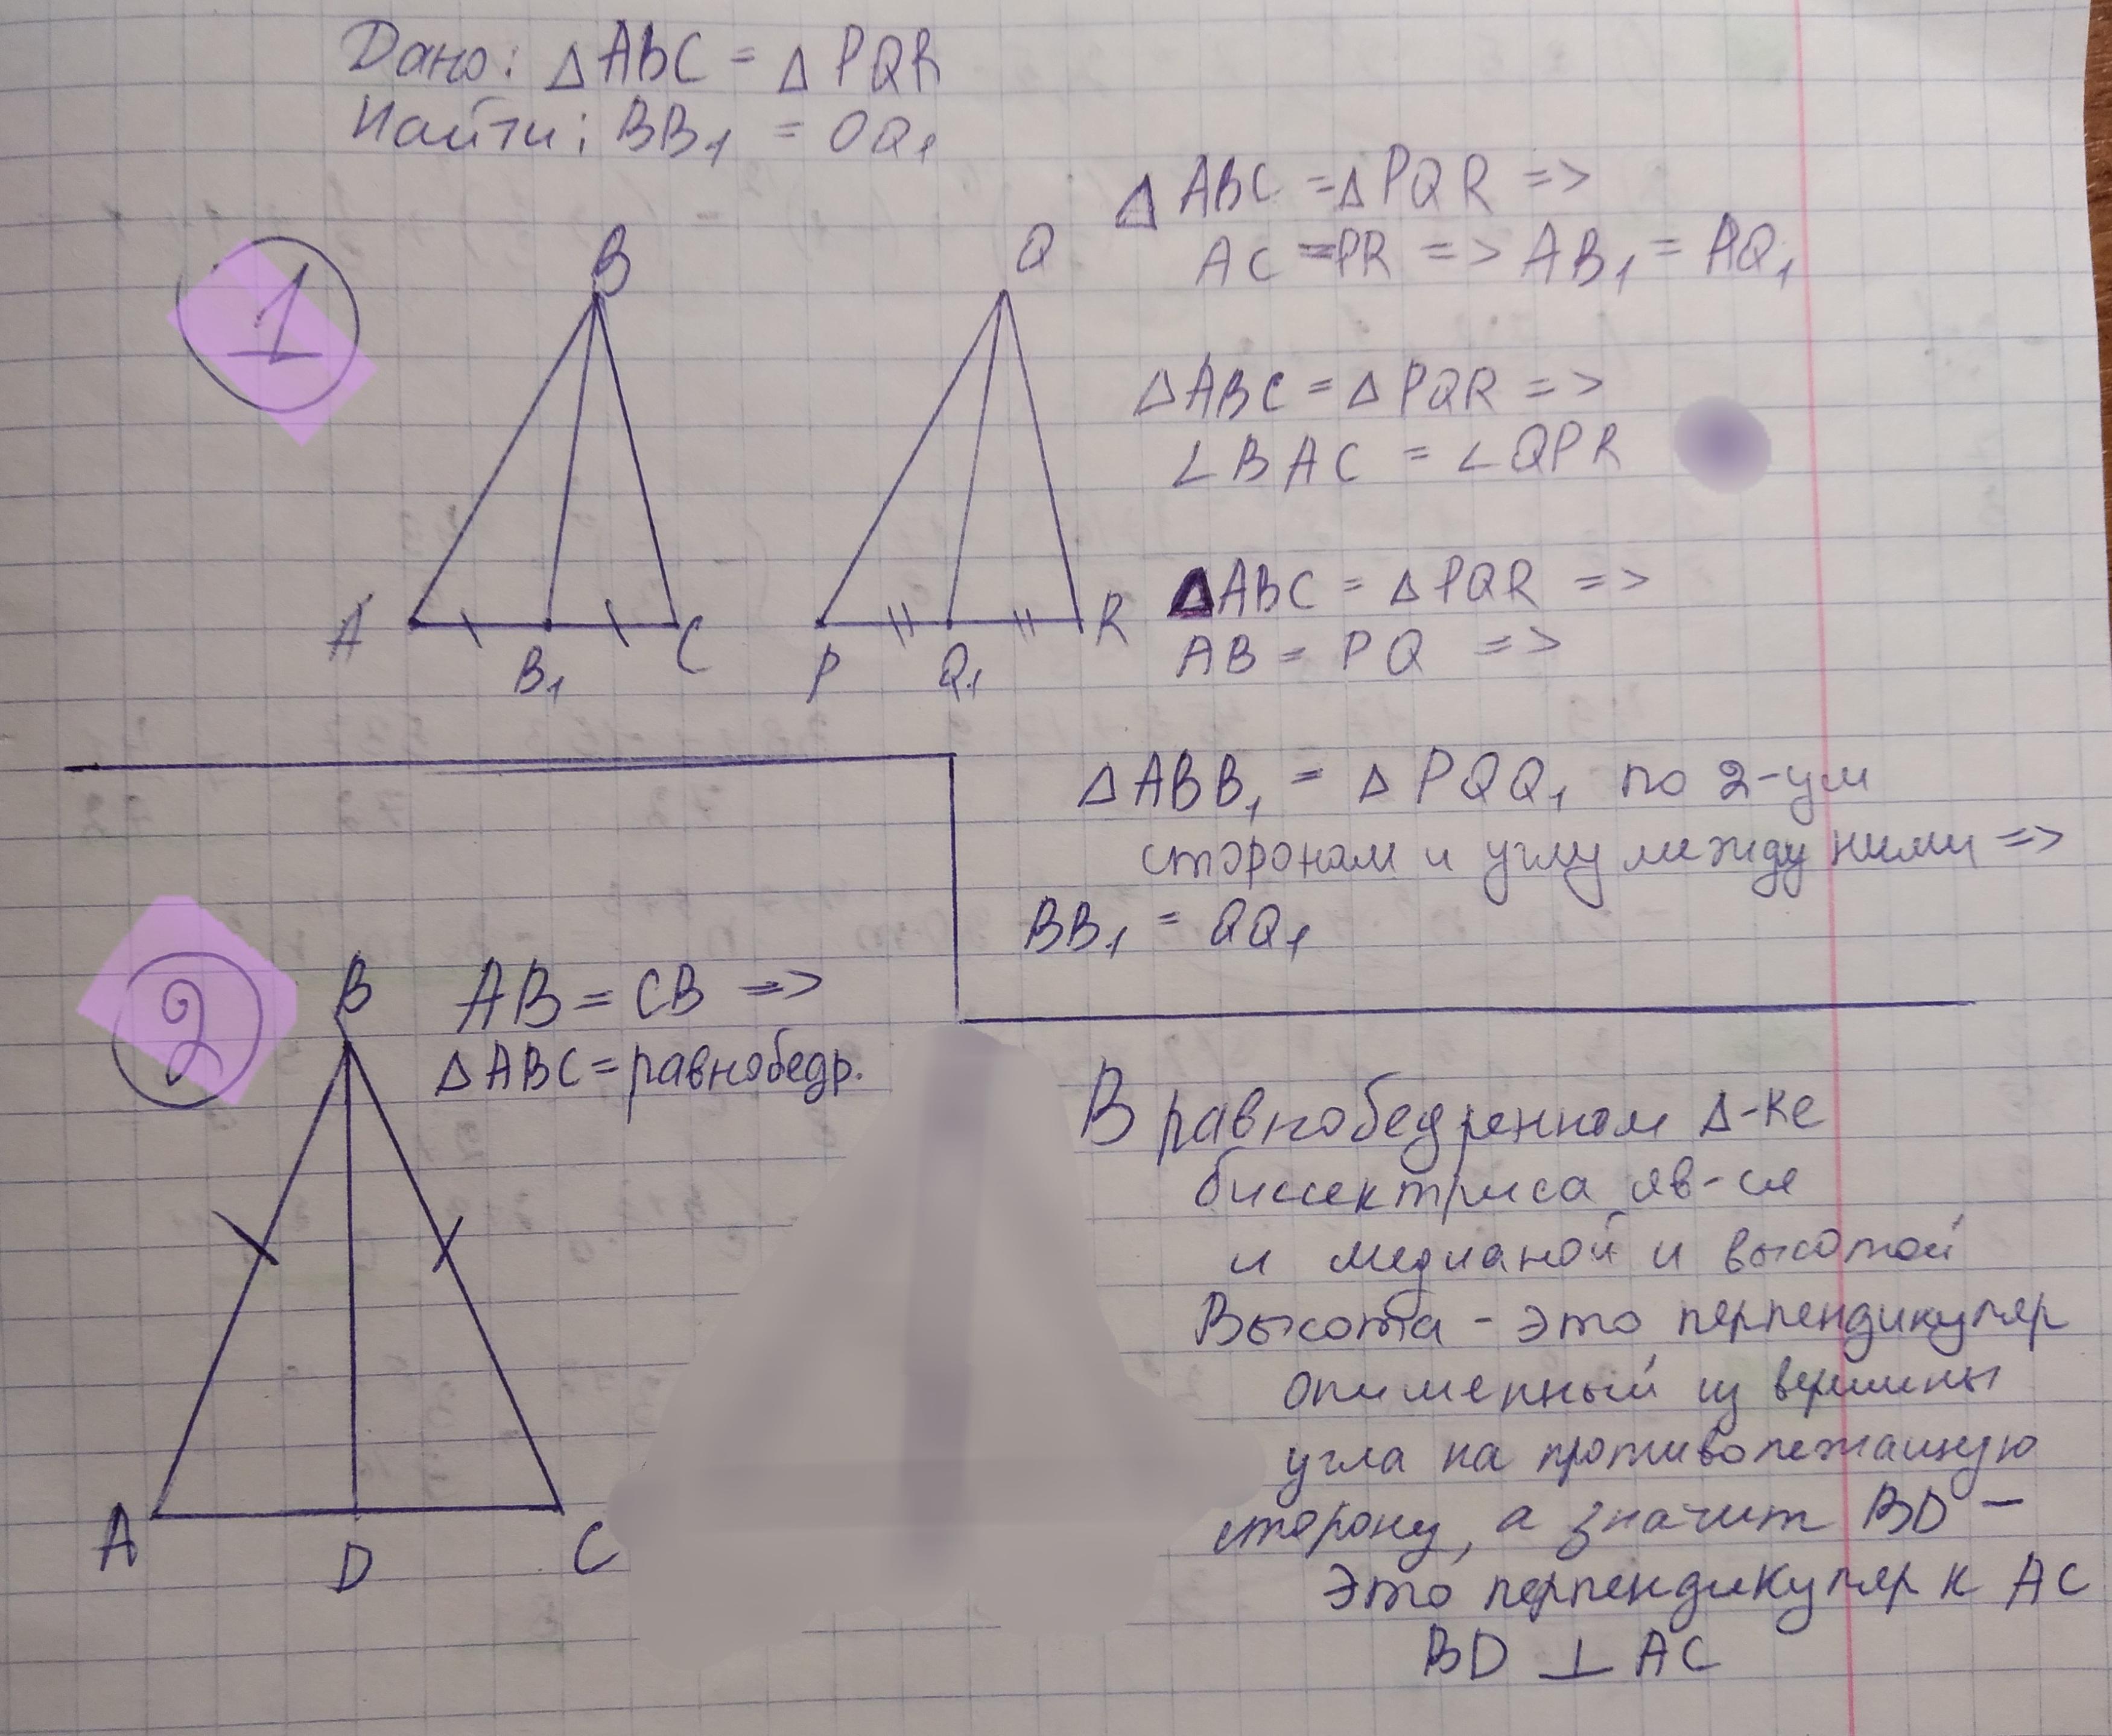 Дано: Δ ABC = Δ PQR
Найти: BB₁ = OQ₁
1
B
A
B₁
C
Q
P
Q₁
R
Δ ABC = Δ PQR =>
AC = PR => AB₁ = PQ₁
Δ ABC = Δ PQR =>
∠ BAC = ∠ QPR
Δ ABC = Δ PQR =>
AB = PQ =>
Δ ABB₁ = Δ PQQ₁ по 2-ум
сторонам и углу между ними =>
BB₁ = QQ₁
2
B
A
D
C
AB = CB =>
Δ ABC = равнобедр.
В равнобедренном Δ-ке
биссектриса яв-ся
и медианой и высотой
Высота - это перпендикуляр
опущенный из вершины
угла на противолежащую
сторону, а значит BD -
Это перпендикуляр к AC
BD ⊥ AC